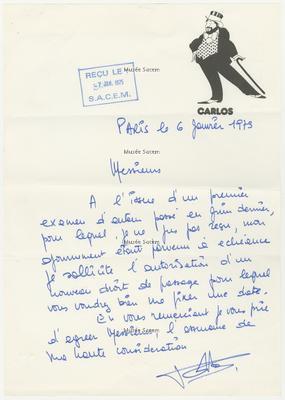 Musée Sacem
REÇU LE
S.A.C.E.M.
CARLOS
PARIS le 6 Janvier 1975
Musée Sacem
Messieurs
A l'issue d'un premier
examen d'auteur passé en Juin dernier,
pour lequel je ne fus pas reçu, mon
ajournement étant parvenu à echéance
Je sollicite l'autorisation d'un
nouveau droit de passage pour lequel
vous voudrez bien me fixer une date.
En vous remerciant je vous prie
d'agreer Messieurs, l'assurance de
ma haute consideration
Musée Sacem